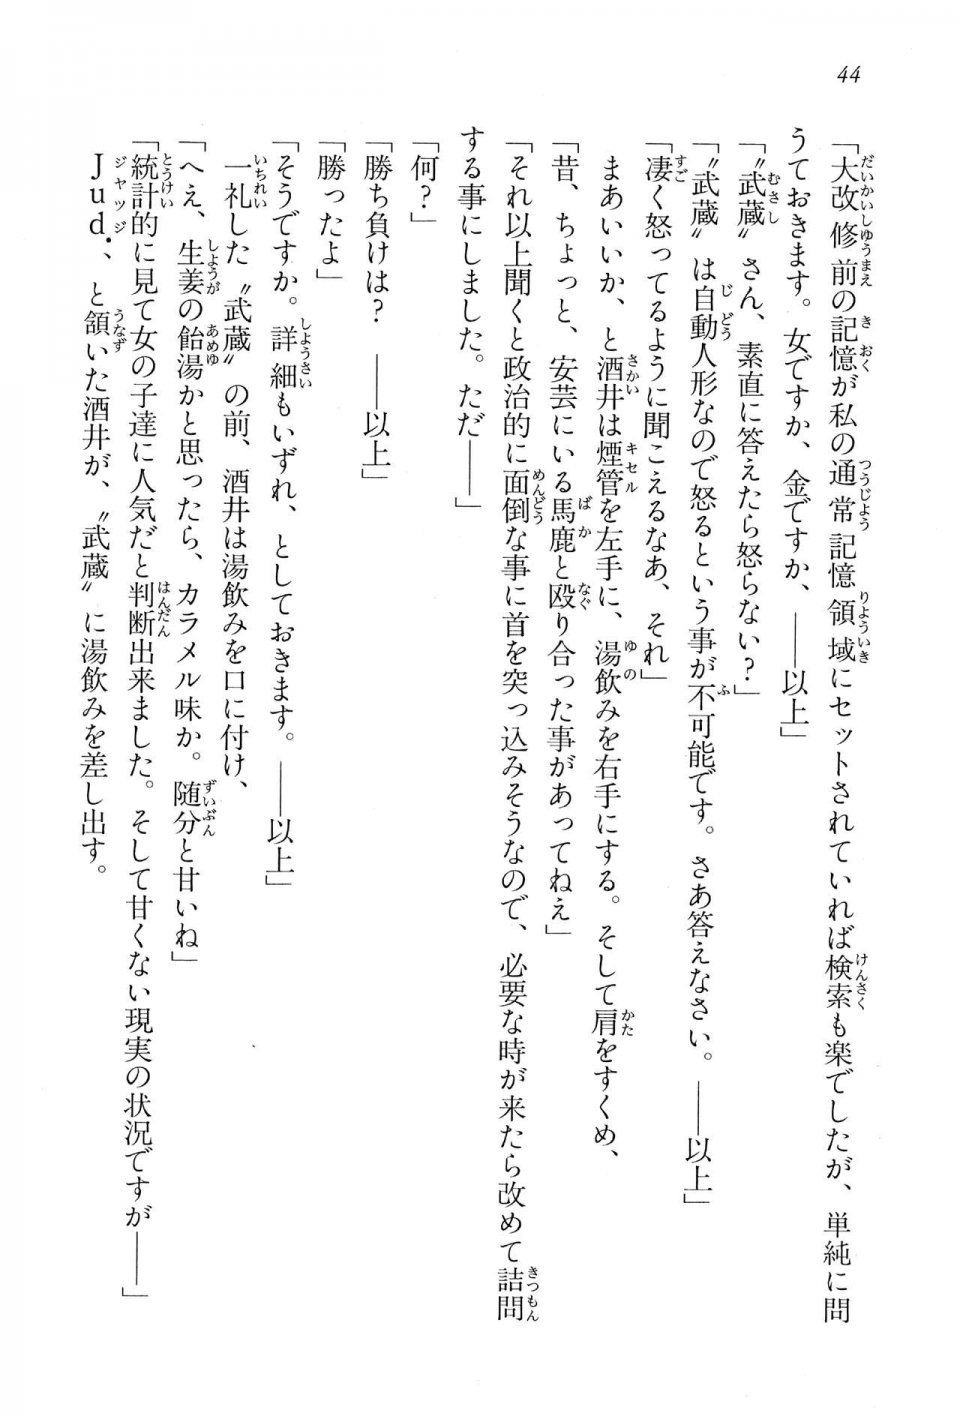 44
「大改修前の記憶が私の通常記憶領域にセットされていれば検索も楽でしたが、単純に問
うておきます。女ですか、金ですか、――以上」
「〝武蔵〟さん、素直に答えたら怒らない？」
「〝武蔵〟は自動人形なので怒るという事が不可能です。さあ答えなさい。――以上」
「凄く怒ってるように聞こえるなあ、それ」
まあいいか、と酒井は煙管を左手に、湯飲みを右手にする。そして肩をすくめ、
「昔、ちょっと、安芸にいる馬鹿と殴り合った事があってねえ」
「それ以上聞くと政治的に面倒な事に首を突っ込みそうなので、必要な時が来たら改めて詰問
する事にしました。ただ――」
「何？」
「勝ち負けは？　――以上」
「勝ったよ」
「そうですか。詳細もいずれ、としておきます。――以上」
一礼した〝武蔵〟の前、酒井は湯飲みを口に付け、
「へえ、生姜の飴湯かと思ったら、カラメル味か。随分と甘いね」
「統計的に見て女の子達に人気だと判断出来ました。そして甘くない現実の状況ですが――」
Ｊｕｄ．、と頷いた酒井が、〝武蔵〟に湯飲みを差し出す。